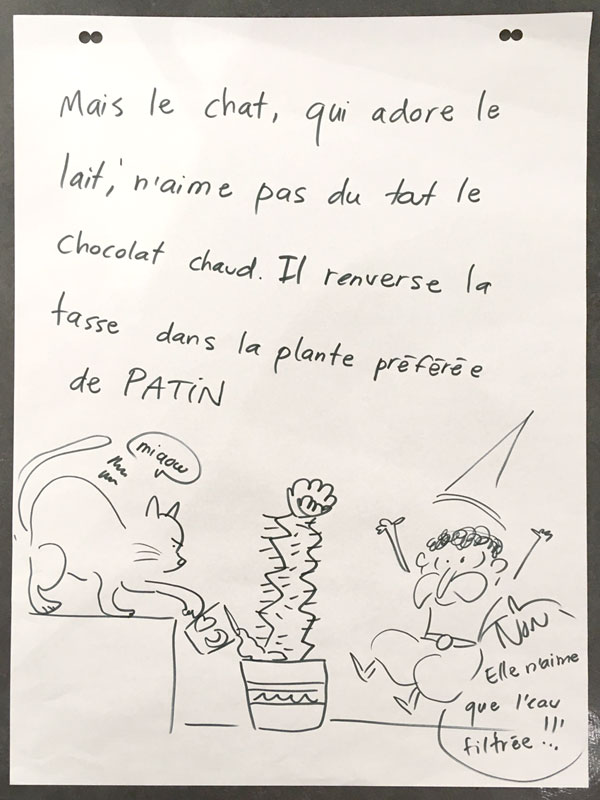 Mais le chat, qui adore le
lait, n'aime pas du tout le
chocolat chaud. Il renverse la
tasse dans la plante préférée
de PATIN
miaou
Non
Elle n'aime
que l'eau
filtrée...!!!